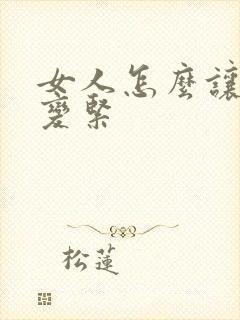 女人怎麼讓
變緊
松蓮